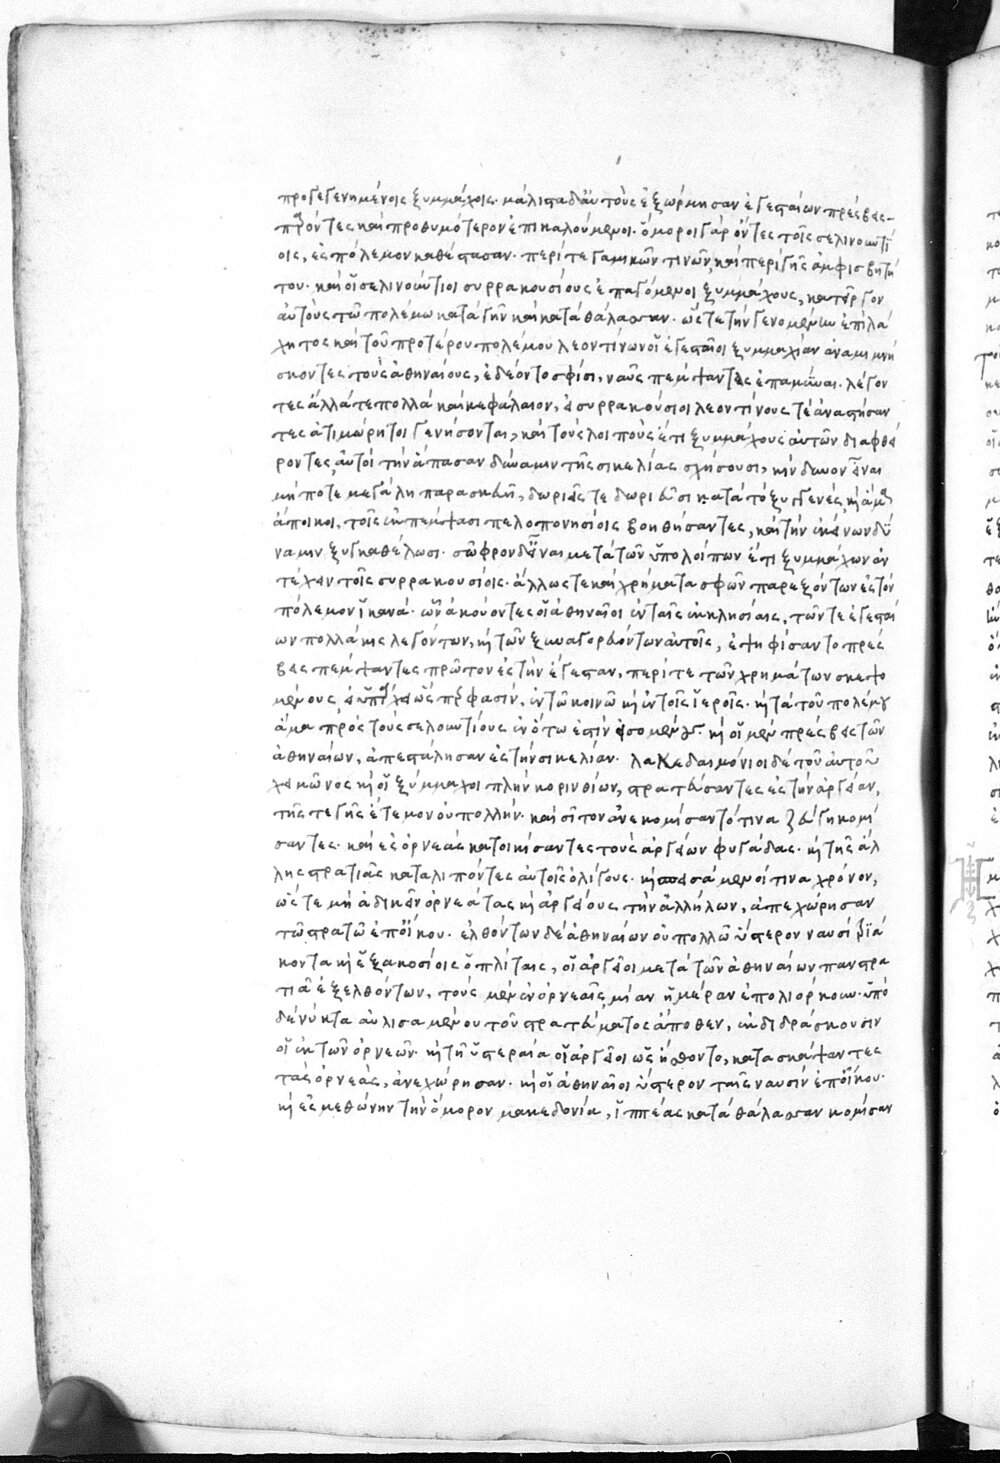 προγεγενημένοις ξυμμάχοις. μάλιστα δ' αὐτοὺς ἐξώρμησαν ἐγεσταίων πρέσβεις
παρόντες καὶ προθυμότερον ἐπικαλούμενοι. ὅμοροι γὰρ ὄντες τοῖς σελινουντί
οις, ἐς πόλεμον καθέστασαν. περί τε γαμικῶν τινῶν, καὶ περὶ γῆς ἀμφισβητή
του. καὶ οἱ σελινούντιοι συρρακουσίους ἐπαγόμενοι ξυμμάχους, κατεῖργον
αὐτοὺς τῶ πολέμω κατὰ γῆν καὶ κατὰ θάλασσαν. ὥστε τὴν γενομένην ἐπὶ λά
χητος καὶ τοῦ προτέρου πολέμου λεοντίνων οἱ ἐγεσταῖοι ξυμμαχίαν ἀναμιμνή
σκοντες τοὺς ἀθηναίους, ἐδέοντο σφίσι, ναῦς πέμψαντας ἐπαμῦναι. λέγον
τες ἄλλά τε πολλὰ καὶ κεφάλαιον, εἰ συρρακούσιοι λεοντίνους τὲ ἀναστήσαν
τες ἀτιμώρητοι γενήσονται, καὶ τοὺς λοιποὺς ἔτι ξυμμάχους αὐτῶν διαφθεί
ροντες, αὐτοὶ τὴν ἅπασαν δύναμιν τῆς σικελίας σχήσουσι, κίνδυνον εἶναι
μή ποτε μεγάλη παρασκευῆ, δωριεῖς τε δωριεῦσι κατὰ τὸ ξυγγενές, καὶ ἅμα
ἄποικοι, τοῖς ἐκπέμψασι πελοπονησίοις βοηθήσαντες, καὶ τὴν ἐκείνων δύ
ναμιν ξυγκαθέλωσι. σῶφρον δ' εἶναι μετὰ τῶν ὑπολοίπων ἔτι ξυμμάχων ἀν
τέχειν τοῖς συρρακουσίοις. ἄλλως τε καὶ χρήματα σφῶν παρεξόντων ἐς τὸν
πόλεμον ἱκανά. ὧν ἀκούοντες οἱ ἀθηναῖοι ἐν ταῖς ἐκκλησίαις, τῶν τε ἐγεσταί
ων πολλάκις λεγόντων, καὶ τῶν ξυναγορευόντων αὐτοῖς, ἐψηφίσαντο πρέσ
βεις πέμψαντες πρῶτον ἐς τὴν ἔγεσταν, περί τε τῶν χρημάτων σκεψο
μένους εἰ ὑπάρχει ὥς φασιν, ἐν τῶ κοινῶ καὶ ἐν τοῖς ἱεροῖς. καὶ τὰ τοῦ πολέμου
ἅμα πρὸς τοὺς σελουντίους ἐν ὅτω ἐστὶν εἰσομένους. καὶ οἱ μὲν πρέσβεις τῶν
ἀθηναίων, ἀπεστάλησαν ἐς τὴν σικελίαν. λακεδαιμόνιοι δὲ τοῦ αὐτοῦ
χειμῶνος καὶ οἱ ξύμμαχοι πλὴν κορινθίων, στρατεύσαντες ἐς τὴν ἀργείαν,
τῆς τε γῆς ἔτεμον οὐ πολλήν. καὶ σῖτον ἀνεκομίσαντό τινα ζεύγη κομί
σαντες. καὶ ἐς ὀρνεὰς κατοικίσαντες τοὺς ἀργείων φυγάδας. καὶ τῆς ἄλ
λης στρατιᾶς καταλιπόντες αὐτοῖς ὀλίγους. καὶ σπεισάμενοί τινα χρόνον,
ὥστε μὴ ἀδικεῖν ὀρνεάτας καὶ ἀργείους τὴν ἀλλήλων, ἀπεχώρησαν
τῶ στρατῶ ἐπ' οἴκου. ἐλθόντων δὲ ἀθηναίων οὐ πολλῶ ὕστερον ναυσὶ τριά
κοντα καὶ ἑξακοσίοις ὁπλίταις, οἱ ἀργεῖοι μετὰ τῶν ἀθηναίων πανστρα
τιᾶ ἐξελθόντων, τοὺς μὲν ἐν ὀρνεαῖς μίαν ἡμέραν ἐπολιόρκουν. ὑπὸ
δὲ νύκτα αὐλισαμένου τοῦ στρατεύματος ἄποθεν, ἐκδιδράσκουσιν
οἱ ἐκ τῶν ὀρνεῶν. καὶ τῆ ὑστεραία οἱ ἀργεῖοι ὡς ἤσθοντο, κατασκάψαντες
τὰς ὀρνεὰς, ἀνεχώρησαν. καὶ οἱ ἀθηναῖοι ὕστερον ταῖς ναυσὶν ἐπ' οἴκου.
καὶ ἐς μεθώνην τὴν ὅμορον μακεδονία, ἱππέας κατὰ θάλασσαν κομίσαν